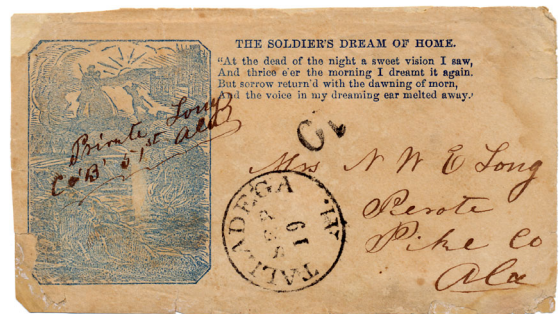 THE SOLDIER'S DREAM OF HOME.
"At the dead of the night a sweet vision I saw,
And thrice e'er the morning I dreamt it again.
But sorrow return'd with the dawning of morn,
And the voice in my dreaming ear melted away.
Private Long
Co 'B' 51st Ala
10
Mrs N W E Long
Perote
Pike Co
Ala
TALLADEGA AL.
19